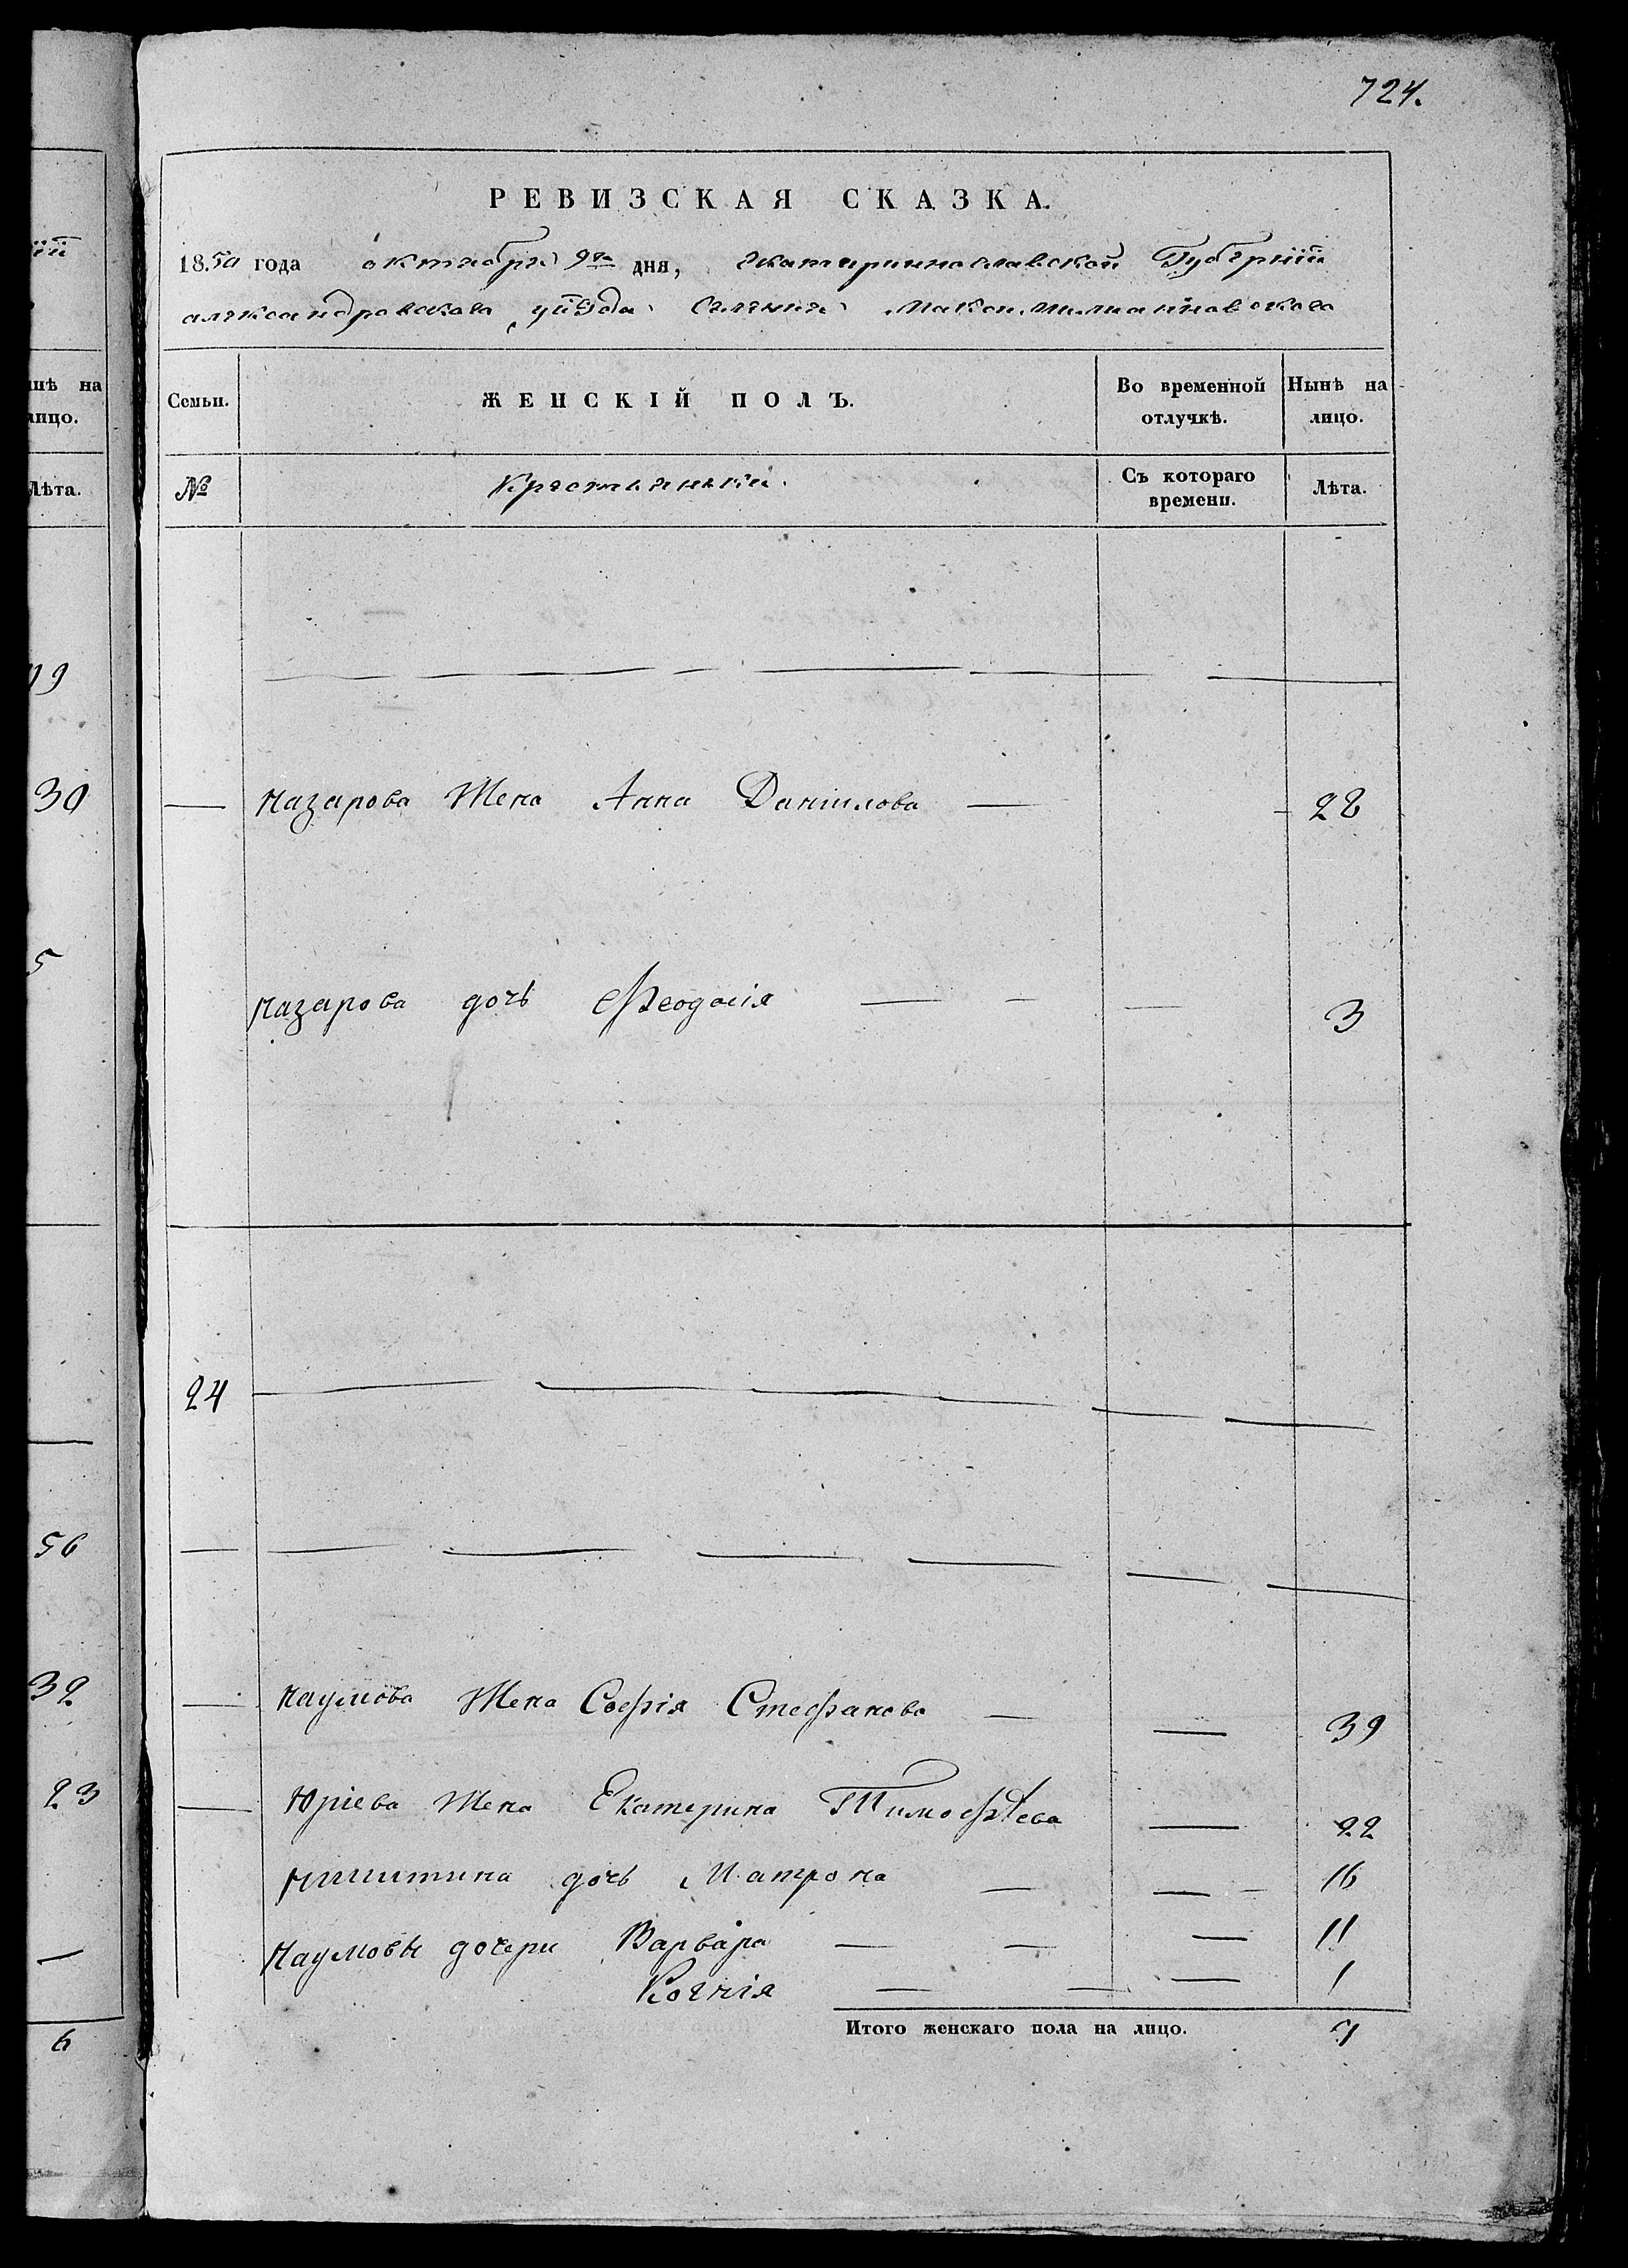 724.
РЕВИЗСКАЯ СКАЗКА.
1850 года октября 9го дня, Екатеринославской Губерніи
александровскаго уѣзда Селенія Максимилиановскаго
Семьи. ЖЕНСКІЙ ПОЛЪ. Во временной отлучкѣ. Нынѣ на лицо.
№ Крестьянъки. Съ котораго времени. Лѣта.
— Назарова Жена Анна Данішлова — 28
Назарова дочь Феодосія — — — 3
24 — — — — — —
— — — — — — —
— Наумова Жена Софія Стефанова — — 39
— Юріева Жена Екатерина Тимофѣева — 22
дочь Матрона — — 16
Наумовы дочери Варвара — — — 11
Ксенія — — — 1
Итого женскаго пола на лицо. 7
нѣ на
лицо.
Лѣта.
30
5
56
32
23
—
6